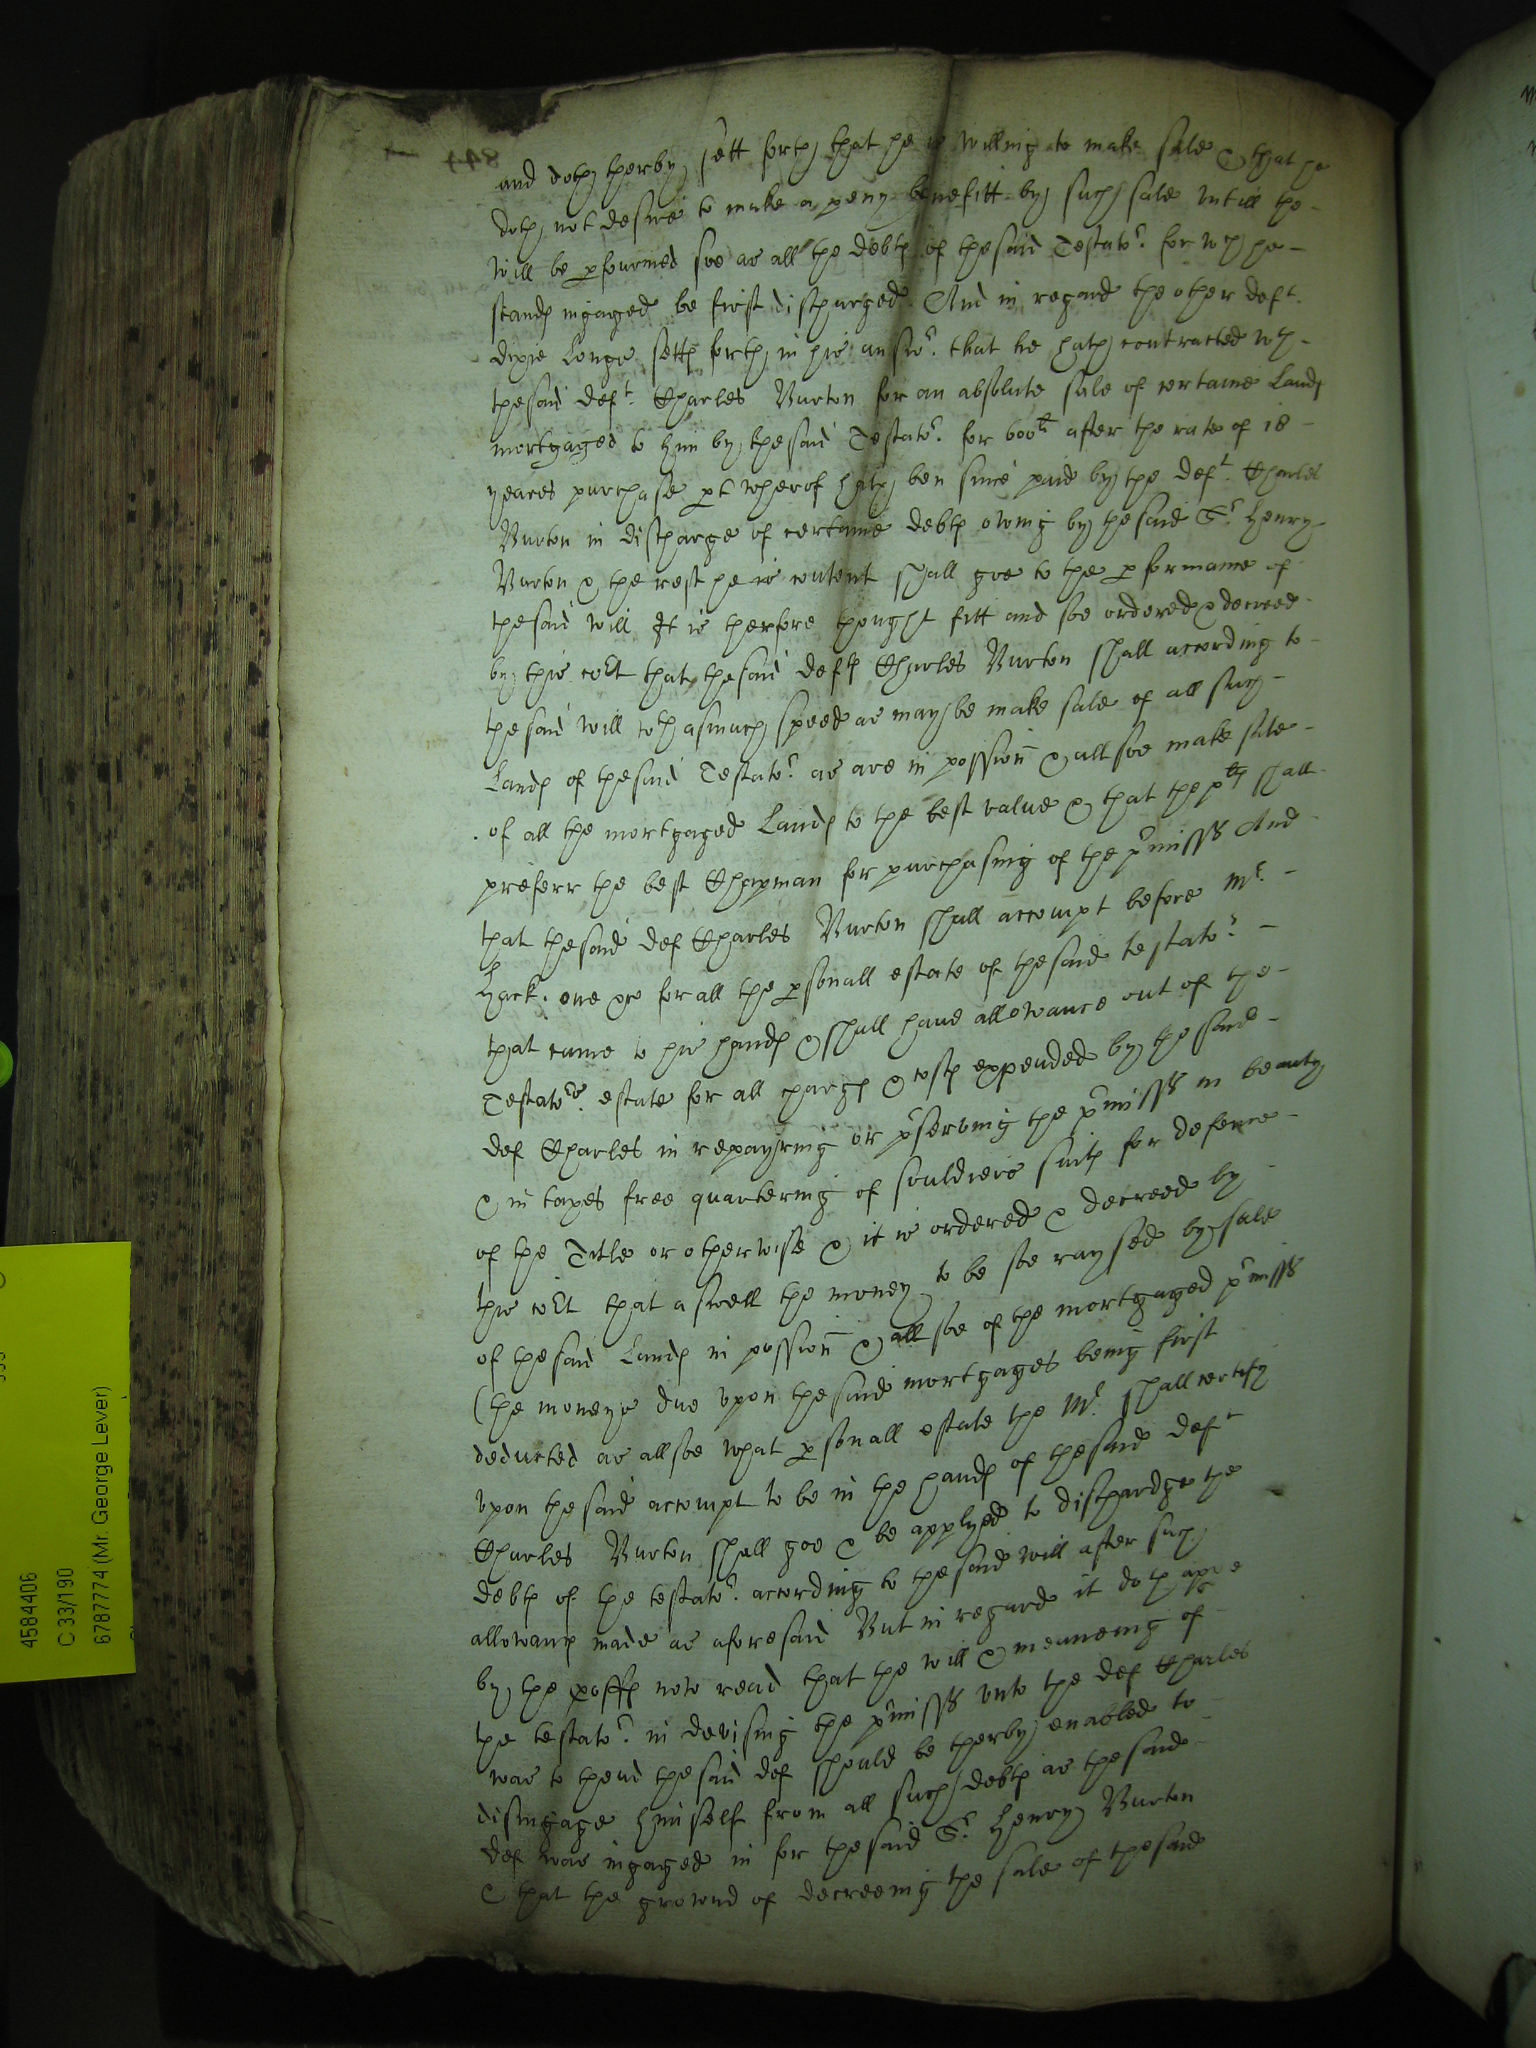 and doth therby sett forth that he is willing to make sale & that he
doth not desire to make a peny benefitt by such sale untill the
will be pfourmed soe as all the debts of the said Testator for wch he
stands ingaged be first discharged And in regard the other deft
Dixie Longe setts forth in his answr that he hath contracted wth
the said deft Charles Burton for an absolute sale of certaine Lands
mortgaged to him by the said Testator for 600li after the rate of 18
yeares purchase pt wherof hath ben since paid by the deft Charles
Burton in discharge of certaine debts oweing by the said Sr Henry
Burton & the rest he is content shall goe to the pformance of
the said will It is therfore thought fitt and soe ordered & decreed
by this cort that the said defts Charles Burton shall according to
the said will wth asmuch speed as may be make sale of all such
Lands of the said Testator as are in possion & allsoe make sale
of all the mortgaged Lands to the best value & that the plts shall
preferr the best Chapman for purchasing of the prmisses And
that the said def Charles Burton shall accompt before Mr
Hack. one &c for all the psonall estate of the said testator
that came to his hands & shall have allowance out of the
Testators estate for all charges & costs expended by the said
def Charles in repayring or prserving the prmisses in beauty
& in taxes free quartering of souldiers suits for defence
of the Title or otherwise & it is ordered & decreed by
this cort that aswell the money to be soe raysed by sale
of the said Lands in possion & allsoe of the mortgaged prmisses
(the moneys due upon the said mortgages being first
deducted as allsoe what psonall estate the Mr shall certify
upon the said accompt to be in the hands of the said deft
Charles Burton shall goe & be applyed to dischardge the
debts of the testator according to the said will after such
allowance made as aforesaid But in regard it doth appe
by the proffs now read that the will & meaneing of
the testator in devising the prmisses unto the def Charles
was to thend the said def should be therby enabled to
disingage himself from all such debts as the said
def was ingaged in for the said Sr Henry Burton
& that the grownd of decreeing the sale of the said
4584406
C 33/190
6787774 (Mr. George Lever)